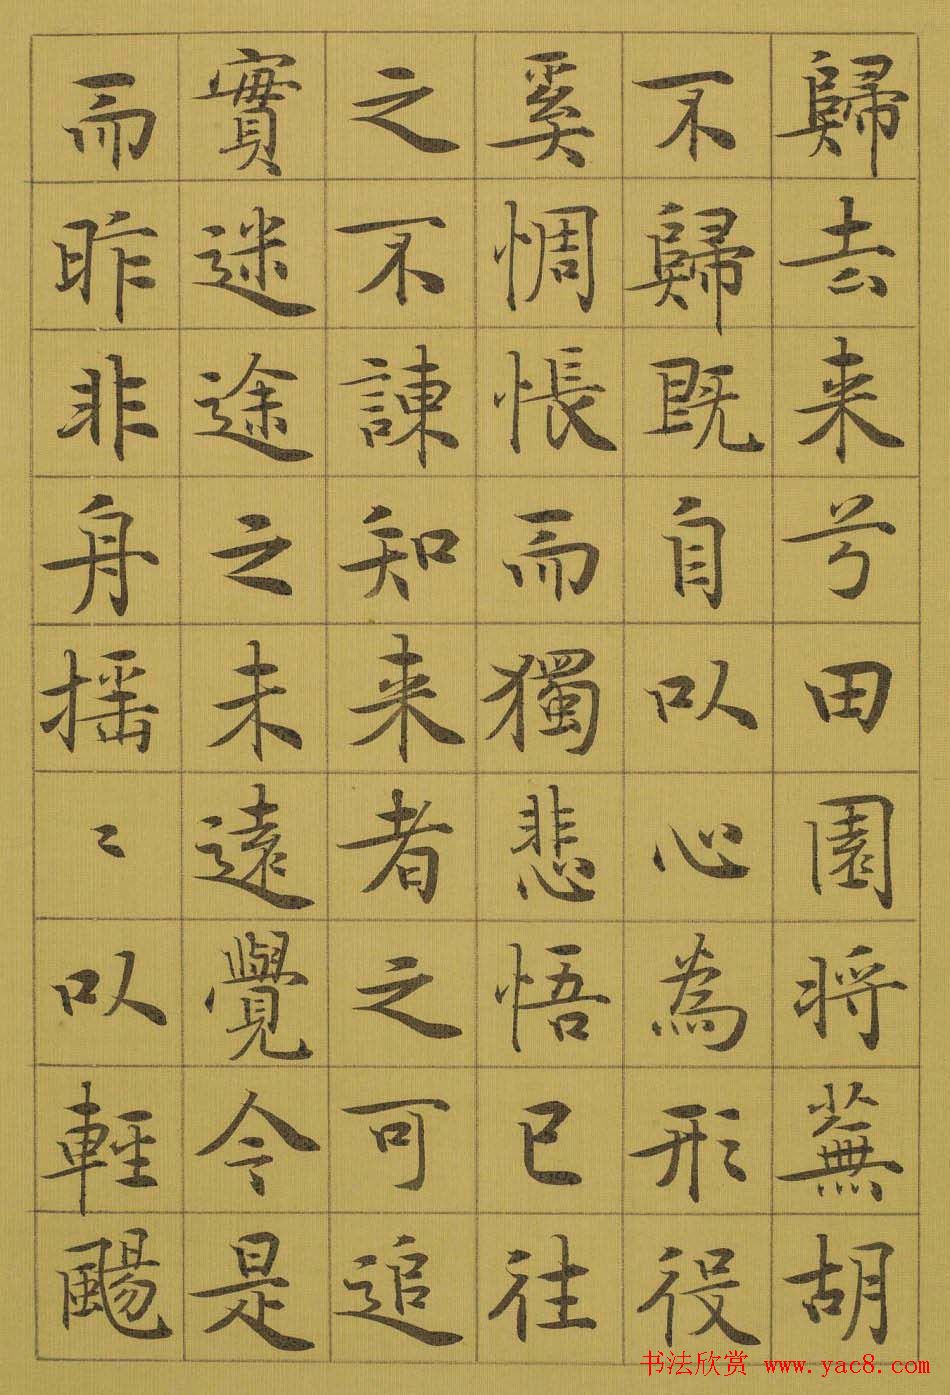 歸去来兮田園将蕪胡
不歸既自以心為形役
奚惆悵而獨悲悟已往
之不諫知来者之可追
實迷途之未遠覺今是
而昨非舟摇〻以輕颺
书法欣赏 www.yac8.com